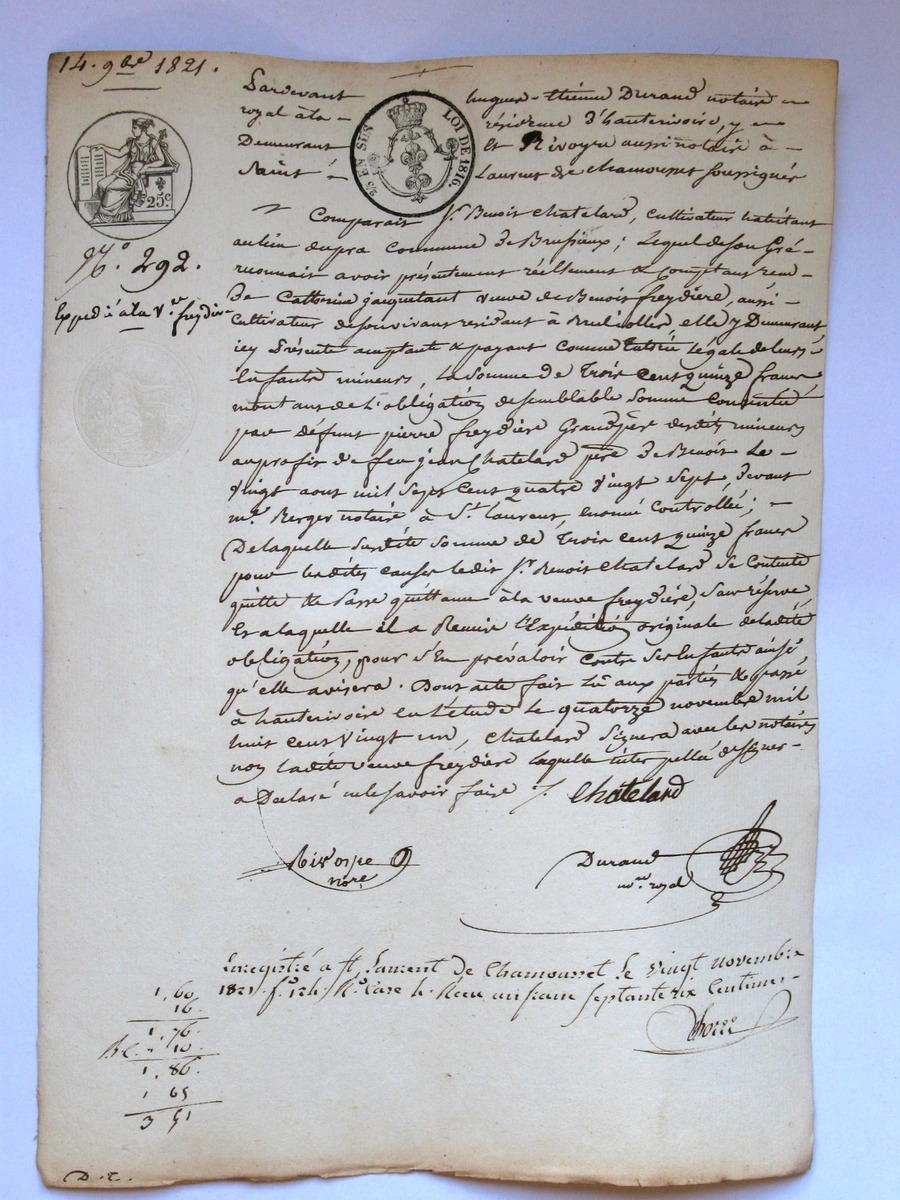 14. 9bre 1821.
Pardevant hugues-étienne Durand notaire
royal à la résidence d'hauterivoire, y
Demeurant Et Rivoyre aussi notaire à
Saint Laurent de Chamousset soussignés
2/5 EN SUS LOI DE 1816.
25c.
N.o 292.
Expedié à la V.e freydiere
Comparait Sr. Benoit Chatelard, cultivateur habitant
au lieu dupra commune de Brussieux; Lequel de son Gré
reconnait avoir présentement réellement & comptant reçu
De Catherine jacquetant veuve de Benoit freydière, aussi
Cultivateur de son vivant residant à Brulliolles, elle y Demeurant
icy Présente acceptante & payant comme tutrice Légale de leurs
Enfants mineurs, La somme De Trois Cent quinze francs
montant de L'obligation de semblable somme Consentie
par défunt pierre freydière Grand père desdits mineurs
au profit de feu jean Chatelard père de Benoit Le
Vingt aout mil sept cent quatre vingt sept, devant
me. Berger notaire, à St. Laurent, enoncé Controllée;
De laquelle susdite somme de Trois cent quinze francs
pour lesdites causes ledit Sr Benoit Chatelard se contente
quitte & passe quittance à la veuve freydière, sans réserve
Et à laquelle il a Remise L'Expédition originale de ladite
obligation, pour s'En prévaloir contre ses Enfants ainsi
qu'elle avisera. Dont acte fait Lû aux parties & passé
à hauterivoire En L'étude Le quatorze novembre mil
huit cent vingt un, Chatelard signera avec les notaires
non ladite veuve freydière laquelle interpellée de signer
a Déclaré ne le savoir faire /. Chatelard
Rivoyre
nore.
Durand
nore. royal
Enregistré a St. Laurent de Chamousset Le vingt novembre
1821. fo. 124. Ro. Case 4. Reçu un franc septante six Centimes
1, 60
16.
1, 76.
10
1, 86.
1 65
3 51
D. E.